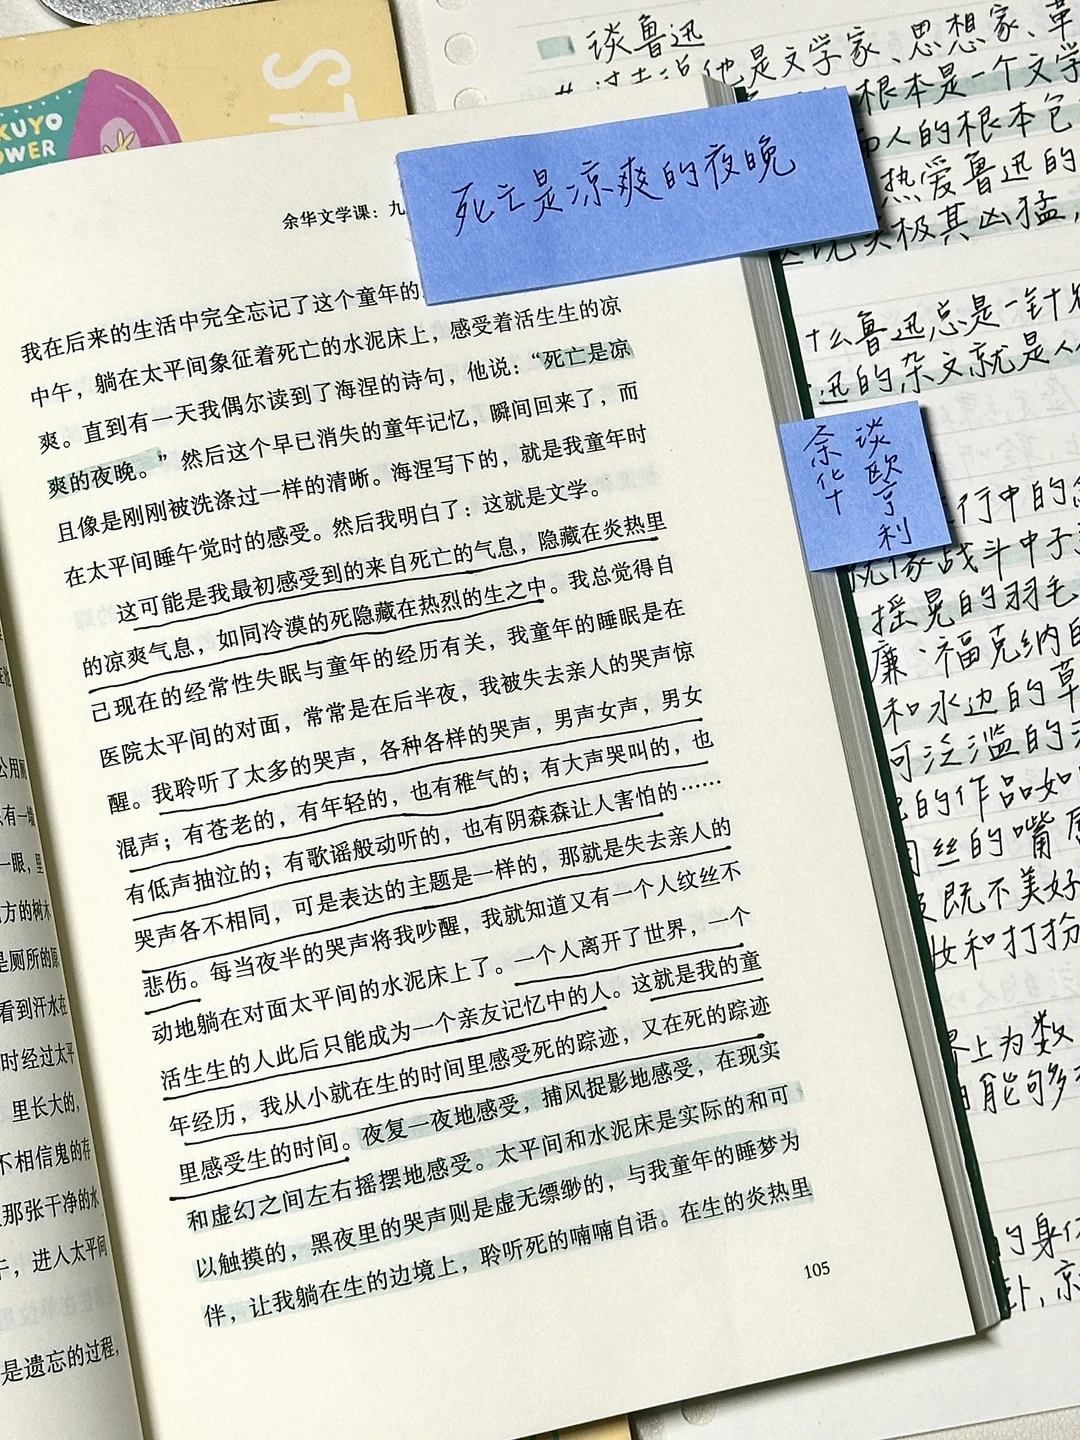 谈鲁迅
他是文学家、思想家、革
根本是一个文学
人的根本包
热爱鲁迅的
极其凶猛，
什么鲁迅总是一针
迅的杂文就是人
行中的
就像战斗中
摇晃的羽毛
廉·福克纳的
和水边的草
可泛滥的
的作品如
丝的嘴唇
既不美好
妆和打扮
界上为数
能够
的身体
KUYO
OWER
ST
死亡是凉爽的夜晚
余华
谈欧亨利
余华文学课：九
我在后来的生活中完全忘记了这个童年的
中午，躺在太平间象征着死亡的水泥床上，感受着活生生的凉
爽。直到有一天我偶尔读到了海涅的诗句，他说：“死亡是凉
爽的夜晚。”然后这个早已消失的童年记忆，瞬间回来了，而
且像是刚刚被洗涤过一样的清晰。海涅写下的，就是我童年时
在太平间睡午觉时的感受。然后我明白了：这就是文学。
这可能是我最初感受到的来自死亡的气息，隐藏在炎热里
的凉爽气息，如同冷漠的死隐藏在热烈的生之中。我总觉得自
己现在的经常性失眠与童年的经历有关，我童年的睡眠是在
医院太平间的对面，常常是在后半夜，我被失去亲人的哭声惊
醒。我聆听了太多的哭声，各种各样的哭声，男声女声，男女
混声；有苍老的，有年轻的，也有稚气的；有大声哭叫的，也
有低声抽泣的；有歌谣般动听的，也有阴森森让人害怕的……
哭声各不相同，可是表达的主题是一样的，那就是失去亲人的
悲伤。每当夜半的哭声将我吵醒，我就知道又有一个人纹丝不
动地躺在对面太平间的水泥床上了。一个人离开了世界，一个
活生生的人此后只能成为一个亲友记忆中的人。这就是我的童
年经历，我从小就在生的时间里感受死的踪迹，又在死的踪迹
里感受生的时间。夜复一夜地感受，捕风捉影地感受，在现实
和虚幻之间左右摇摆地感受。太平间和水泥床是实际的和可
以触摸的，黑夜里的哭声则是虚无缥缈的，与我童年的睡梦为
伴，让我躺在生的边境上，聆听死的喃喃自语。在生的炎热里
105
公用厕
有一
一眼，里
方的树木
是厕所的原
看到汗水在
时经过太平
里长大的，
不相信鬼的存
那张干净的水
午，进入太平间
是遗忘的过程，